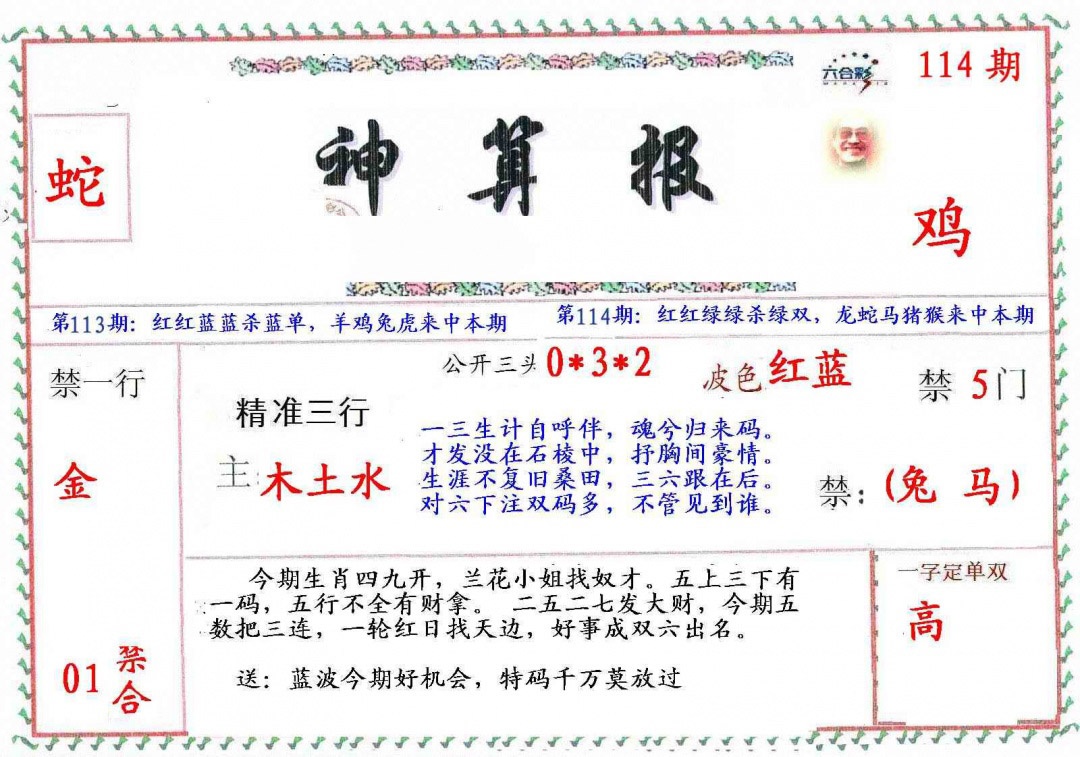 六合彩
114期
神算报
蛇
鸡
第113期：红红蓝蓝杀蓝单，羊鸡兔虎来中本期
第114期：红红绿绿杀绿双，龙蛇马猪猴来中本期
禁一行
金
01
禁合
公开三头0*3*2
波色红蓝
禁5门
精准三行
主:木土水
一三生计自呼伴，魂兮归来码。
才发没在石棱中，抒胸间豪情。
生涯不复旧桑田，三六跟在后。
对六下注双码多，不管见到谁。
禁：(兔 马)
今期生肖四九开，兰花小姐找奴才。五上三下有
一码，五行不全有财拿。 二五二七发大财，今期五
数把三连，一轮红日找天边，好事成双六出名。
送：蓝波今期好机会，特码千万莫放过
一字定单双
高